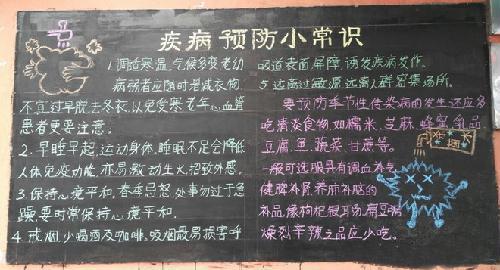 疾病预防小常识
1.调适寒温,气候多变,老幼
病弱者应随时增减衣物
不宜过早脱去冬衣,以免受寒,老年心血管
患者更要注意。
2.早睡早起,运动身体,睡眠不足会降低
人体免疫功能,亦易激动生火,招致外感。
3.保持心境平和,春季忌怒,处事勿过于急
躁要时常保持心境平和。
4.戒烟,少喝酒及咖啡,吸烟最易损害呼
吸道表面屏障,诱发疾病发作。
5.远离过敏源,远离人群密集场所。
要预防季节性传染病的发生,还应多
吃清淡食物,如糯米、芝麻、蜂蜜、乳品、
豆腐、鱼、蔬菜、甘蔗等。
一般可选服具有调血补气、
健脾补肾、养肺补脑的
补品,像枸杞、银耳汤、扁豆
燥烈辛辣之品应少吃。